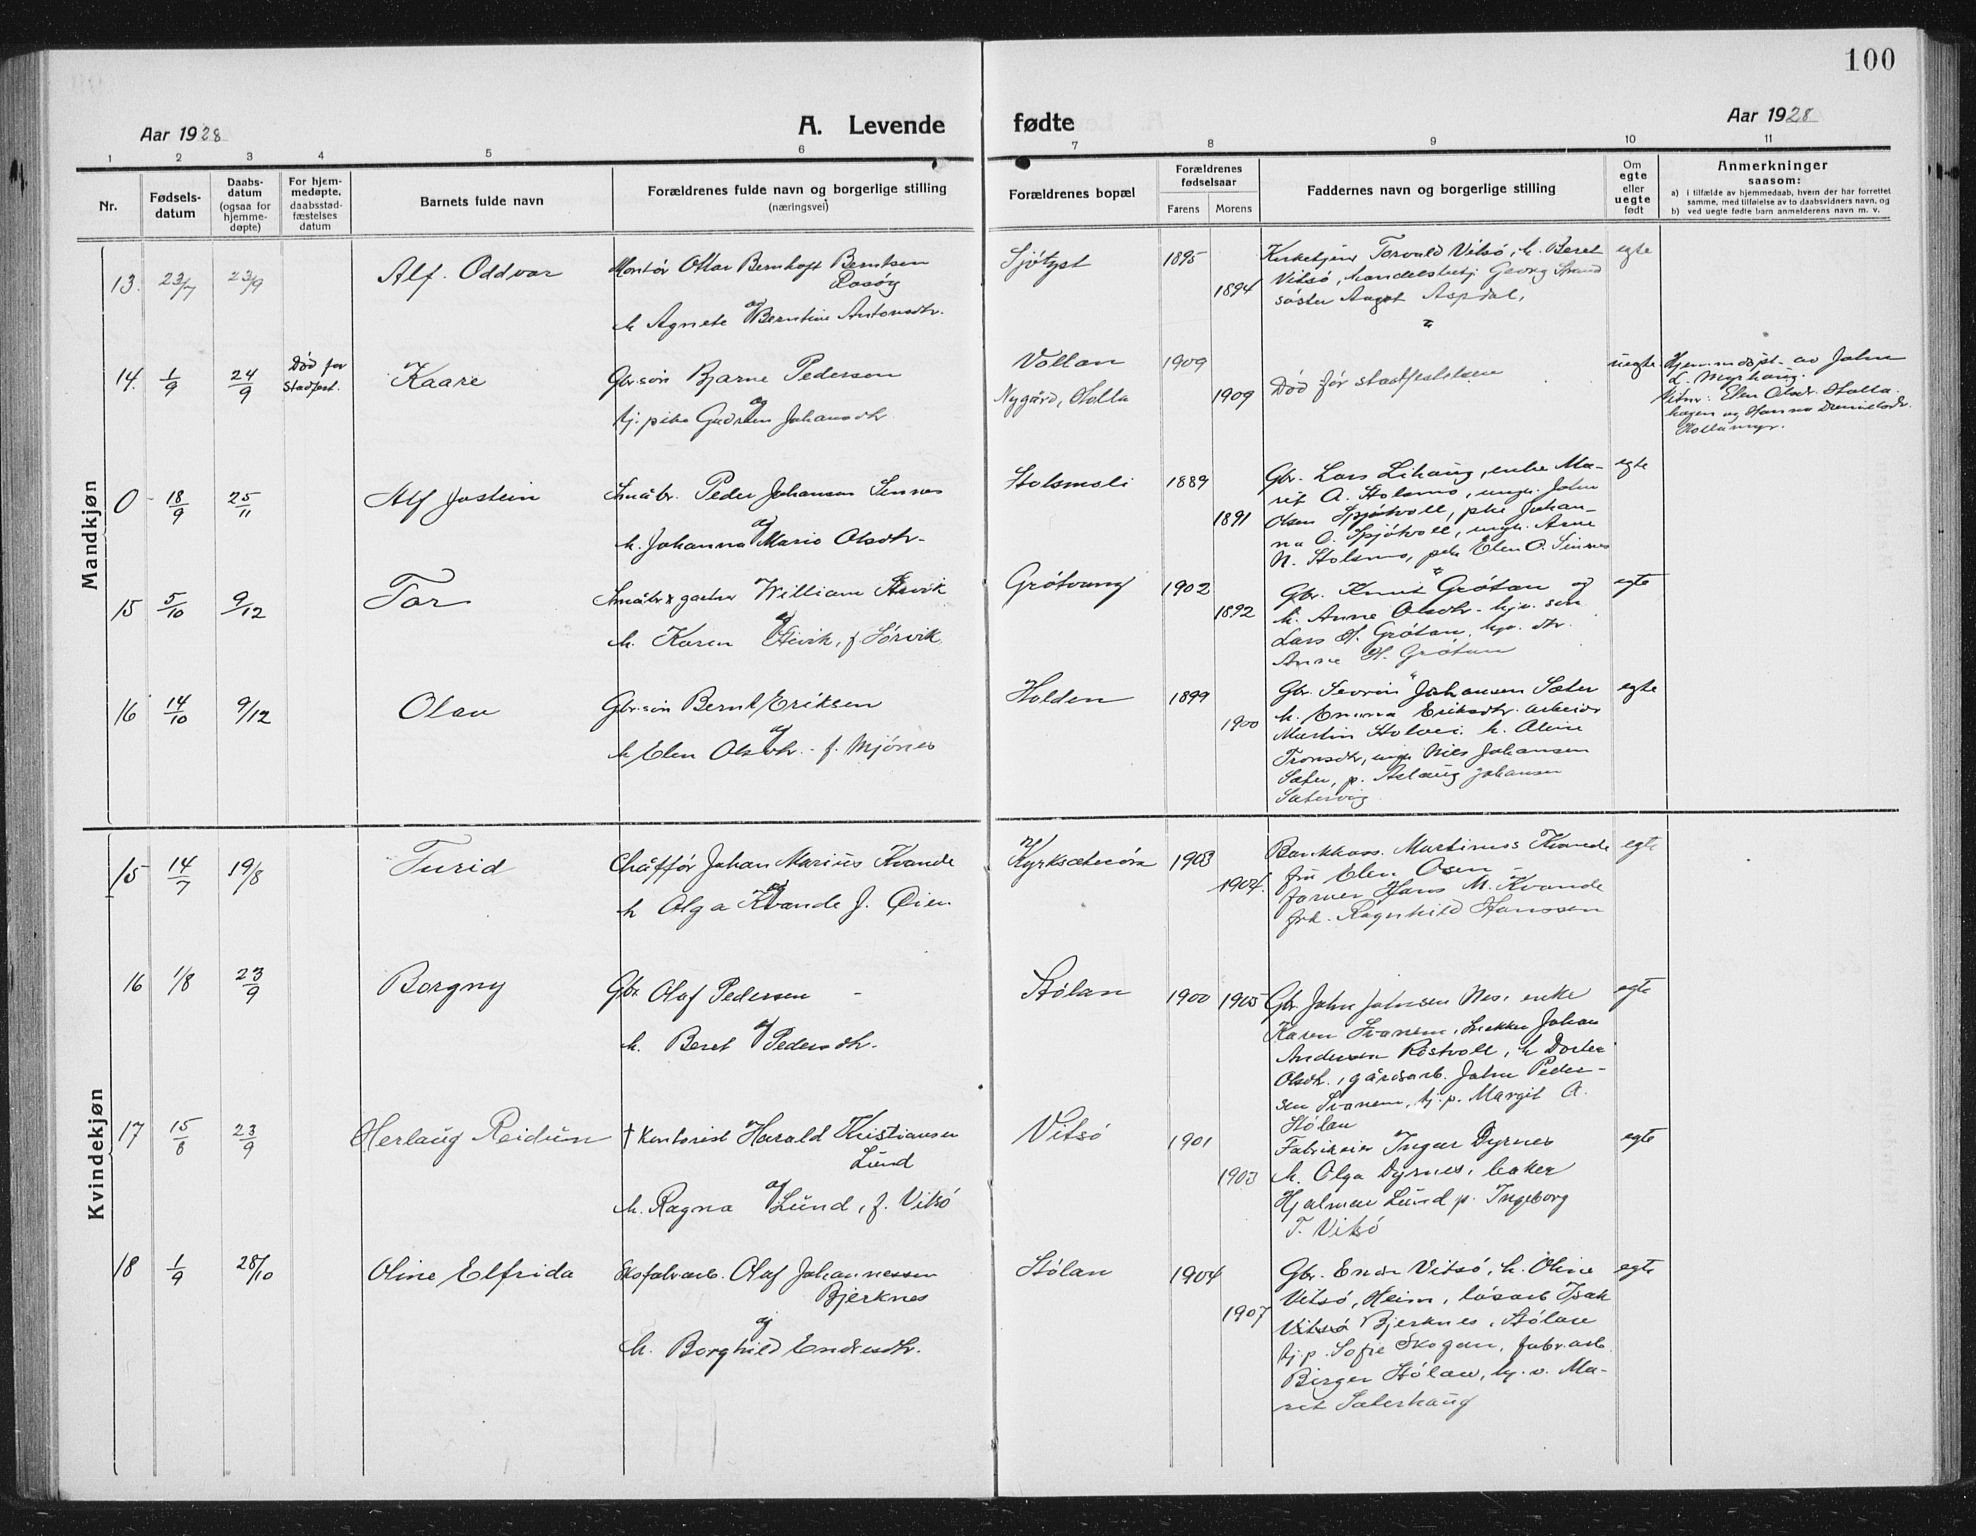 100
Aar 1928
A. Levende
fødte
Aar 1928
1 2 3 4 5 6 7 8 9 10 11
Nr.
Fødsels-
datum
Daabs-
datum
(ogsaa for
hjemme-
døpte)
For hjem-
medøpte,
daabsstad-
fæstelses
datum
Barnets fulde navn
Forældrenes fulde navn og borgerlige stilling
(næringsvei)
Forældrenes bopæl
Forældrenes
fødselsaar
Farens Morens
Faddernes navn og borgerlige stilling
Om
egte
eller
uegte
født
Anmerkninger
saasom:
a) i tilfælde av hjemmedaab, hvem der har forrettet
samme, med tilføielse av to daabsvidners navn, og
b) ved uegte fødte barn anmelderens navn m. v.
Mandkjøn
13. 23/7 23/9 Alf. Oddvar
Montør Ottar Bernhoft Berntsen
Rosøy
og
h. Agnete Berntine Antonsdtr.
Sjøtyst 1895
1894
Kirketjener Torvald Vitsø, h. Beret
Vitsø, handelsbetj. Georg Strand
søster Aagot Aspdal,
egte
14. 1/9 24/9 Død før
stadfest.
Kaare
Gbr.søn Bjarne Pedersen
og
tj. pike Gudrun Johansdtr.
Vollan 1909
Nygård, Holla 1909
Død før stadfestelsen
uegte
Hjemmedøpt av John
L. Myrhaug.
Vitner: Elen Olsdr. Holla-
hagen og Hanna Danielsdr.
Hollamyr.
0 - 18/9 25/11 Alf Jostein
Småbr. Peder Johansen Sinnes
og
h. Johanna Marie Olsdtr.
Stolsmoli 1889
1891
Gbr. Lars Lihaug, enke Ma-
rit A. Stolsmo, ungk. John
Olsen Spjøtvoll, pike Johan-
na O. Spjøtvoll, ungk. Arne
N. Stolsmo, pike Elen O. Sinnes
egte
15 5/10 9/12 Tor
Småbr & gartner William Støvik
og
h. Karen Støvik, f. Sørvik
Grøtvang 1902
1892
Gbr. Knut Grøtan og
h. Anne Olsdtr. hjv. søn
Lars H. Grøtan, hjv. dtr.
Anne H. Grøtan
egte
16 14/10 9/12 Olav
Gbr.søn Bernt Eriksen
og
h. Elen Olsdtr. - f. Mjønes
Holden 1899
1900
Gbr. Sevrin Johansen Sæter
h. Emma Eriksdtr. arbeider
Martin Stolvei h. Aline
Tronsdtr, ungk Nils Johansen
Sæter, p. Aslaug Johansen
Sætervig
egte
Kvindekjøn
15 14/7 19/8 Turid
Chåffør Johan Marius Kvande
og
h Olga Kvande f. Øien
Kyrksæterøra 1903
1904.
Bankkass. Martinus Kvande
fru Elen Osen -
Hans M. Kvande
frk. Ragnhild Hanssen
egte
16 1/8 23/9 Borgny
Gbr. Olaf Pedersen -
og
h. Beret Pedersdtr.
Stølan 1900 1905
Gbr. John Johnsen Nes, enke
Karen Svanem, snekker Johan
Andersen Røstvoll, h Dortea
Olsdtr., gårdsarb. John Peder-
sen Svanem, tj. p. Margit A.
Stølan
egte
17 15/8 23/9 Herlaug Reidun
† Kontorist Harald Kristiansen
Lund
og
h. Ragna Lund, f. Vitsø
Vitsø 1901
1903
Fabrikeier Ingar Dyrnes
h. Olga Dyrnes, baker
Hjalmar Lund p. Ingeborg
T. Vitsø
egte
18 1/9 28/10 Oline Elfrida
Skofabarb. Olaf Johannessen
Bjerknes
og
h. Borghild Endresdtr.
Stølan 1904
1907
Gbr. Endr Vitsø, h. Oline
Vitsø, Heim, løsarb Isak
Vitsø Bjerknes, Stølan
tj. p. Sofie Skogan, fabr.arb
Birger Stølan, tj. p. Ma-
rit Sæterhaug
egte